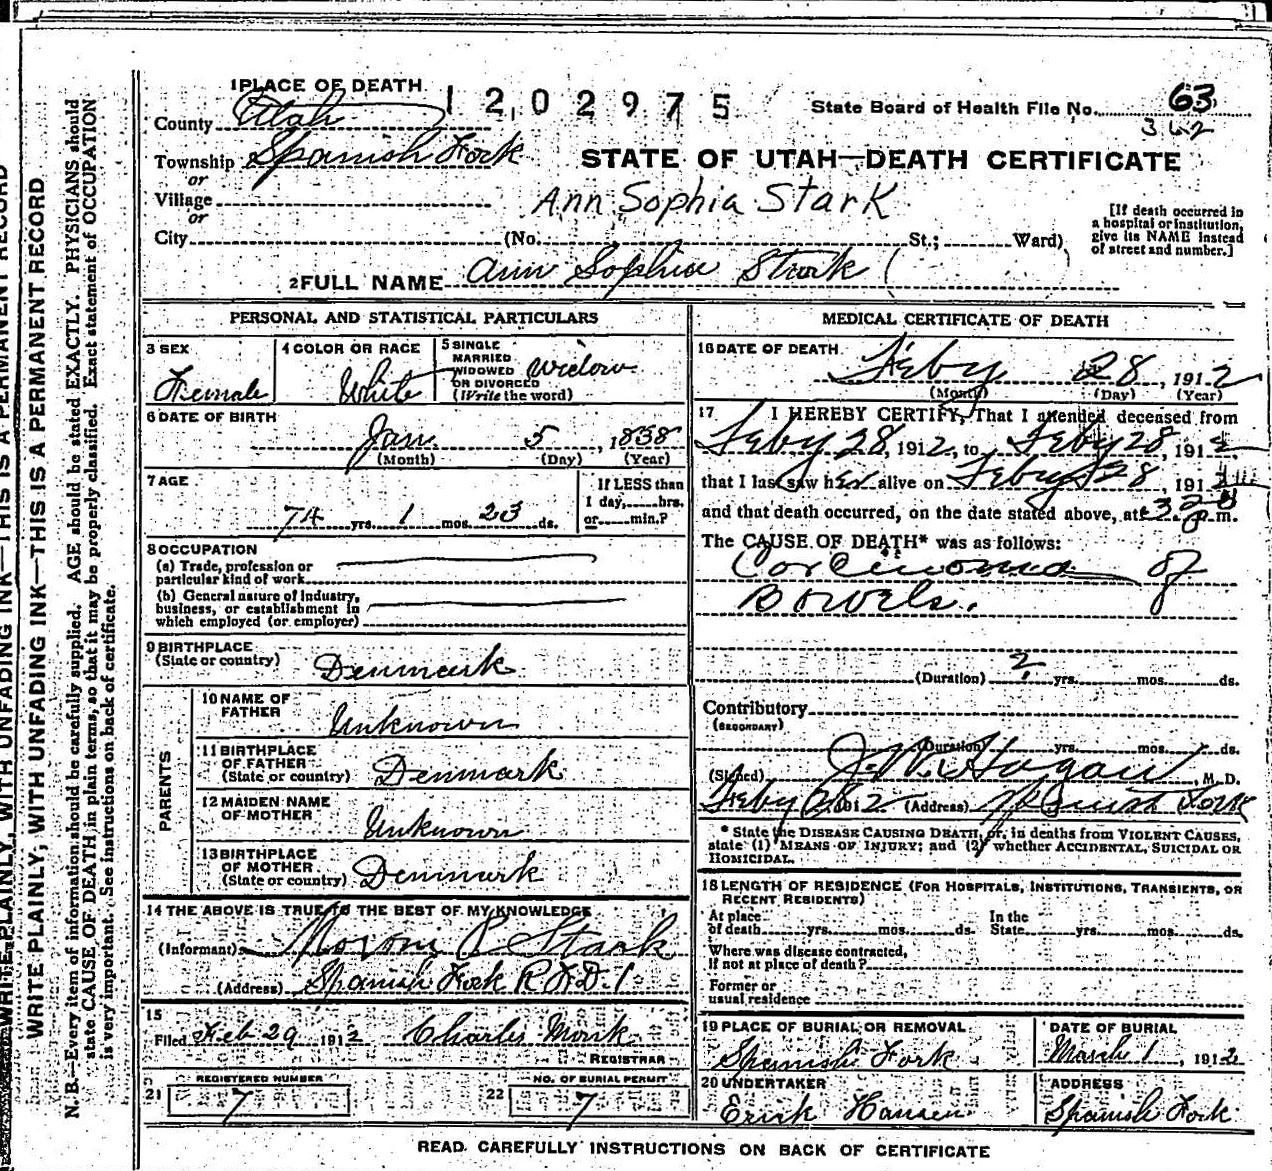 WRITE PLAINLY, WITH UNFADING INK—THIS IS A PERMANENT RECORD
N. B.—Every item of information should be carefully supplied. AGE should be stated EXACTLY. PHYSICIANS should
state CAUSE OF DEATH in plain terms, so that it may be properly classified. Exact statement of OCCUPATION
is very important. See instructions on back of certificate.
1 PLACE OF DEATH 1202975 State Board of Health File No. 63
362
County Utah
Township Spanish Fork STATE OF UTAH—DEATH CERTIFICATE
or
Village Ann Sophia Stark
or
City (No. St.; Ward)
[If death occurred in
a hospital or institution,
give its NAME instead
of street and number.]
2 FULL NAME Ann Sophia Stark
PERSONAL AND STATISTICAL PARTICULARS
3 SEX Female
4 COLOR OR RACE White
5 SINGLE
MARRIED
WIDOWED
OR DIVORCED
(Write the word) Widow
6 DATE OF BIRTH
Jan. 5, 1838
(Month) (Day) (Year)
7 AGE
74 yrs. 1 mos. 23 ds.
If LESS than
1 day, hrs.
or min.?
8 OCCUPATION
(a) Trade, profession or
particular kind of work
(b) General nature of industry,
business, or establishment in
which employed (or employer)
9 BIRTHPLACE
(State or country) Denmark
PARENTS
10 NAME OF
FATHER Unknown
11 BIRTHPLACE
OF FATHER
(State or country) Denmark
12 MAIDEN NAME
OF MOTHER Unknown
13 BIRTHPLACE
OF MOTHER
(State or country) Denmark
14 THE ABOVE IS TRUE TO THE BEST OF MY KNOWLEDGE
(Informant) Moroni P Stark
(Address) Spanish Fork R.F.D. 1
15
Filed Feb 29 1912 Charles Monk
REGISTRAR
21 REGISTERED NUMBER 7
22 NO. OF BURIAL PERMIT 7
MEDICAL CERTIFICATE OF DEATH
16 DATE OF DEATH
Feby 28, 1912
(Month) (Day) (Year)
17 I HEREBY CERTIFY, That I attended deceased from
Feby 28, 1912, to Feby 28, 1912.
that I last saw her alive on Feby 28, 191
and that death occurred, on the date stated above, at 3 p.m.
The CAUSE OF DEATH* was as follows:
Carcinoma of
Bowels.
(Duration) ? yrs. mos. ds.
Contributory
(SECONDARY)
(Duration) yrs. mos. ds.
(Signed) J. W. Hagan, M. D.
Feby 28 1912 (Address) Spanish Fork
* State the DISEASE CAUSING DEATH, or, in deaths from VIOLENT CAUSES,
state (1) MEANS OF INJURY; and (2) whether ACCIDENTAL, SUICIDAL OR
HOMICIDAL.
18 LENGTH OF RESIDENCE (FOR HOSPITALS, INSTITUTIONS, TRANSIENTS, OR
RECENT RESIDENTS)
At place
of death yrs. mos. ds. In the
State yrs. mos. ds.
Where was disease contracted,
If not at place of death?
Former or
usual residence
19 PLACE OF BURIAL OR REMOVAL
Spanish Fork
DATE OF BURIAL
March 1, 1912
20 UNDERTAKER
Erick Hansen
ADDRESS
Spanish Fork
READ CAREFULLY INSTRUCTIONS ON BACK OF CERTIFICATE